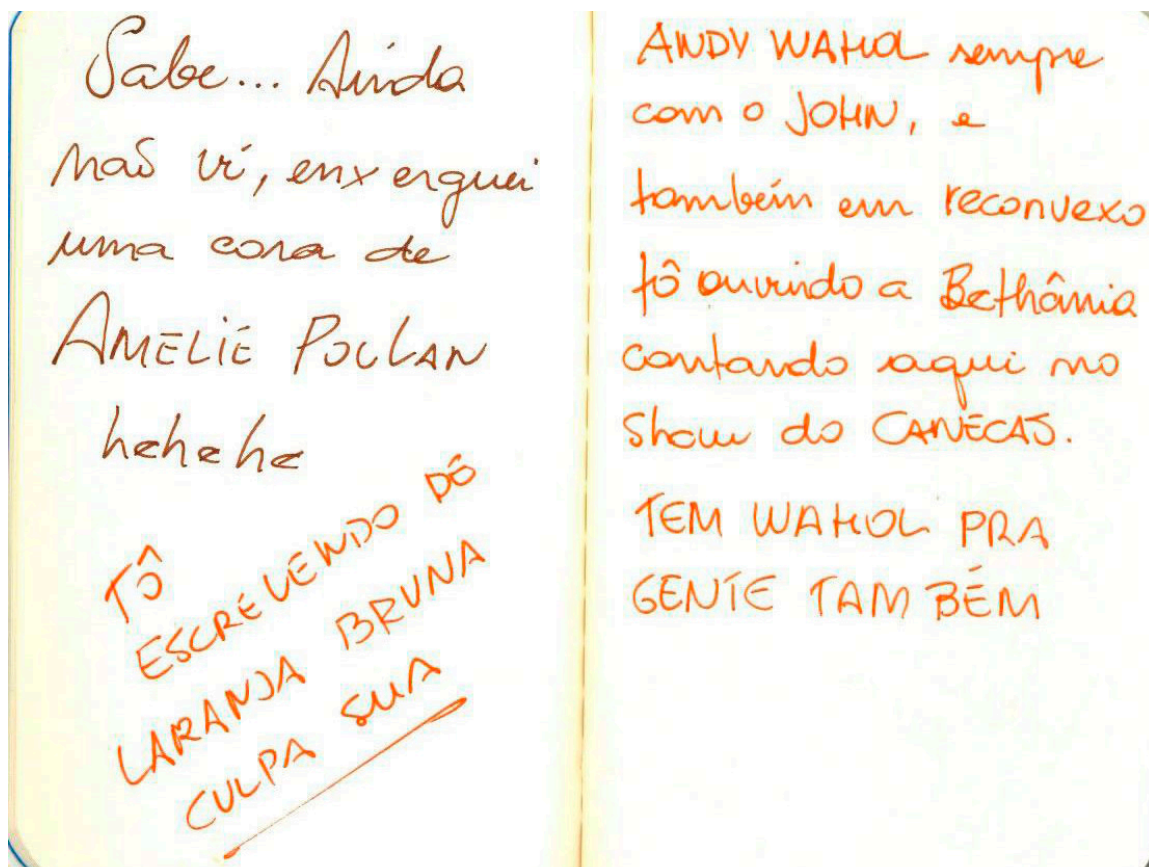 Sabe... Ainda
não vi, enxerguei
uma cora de
AMELIÉ POULAN
hehehe
TÔ
ESCREVENDO DE
LARANJA BRUNA
CULPA SUA
ANDY WAHOL sempre
com o JOHN, e
também em reconvexo
tô ouvindo a Bethânia
cantando aqui no
Show do CANECAS.
TEM WAHOL PRA
GENTE TAMBÉM